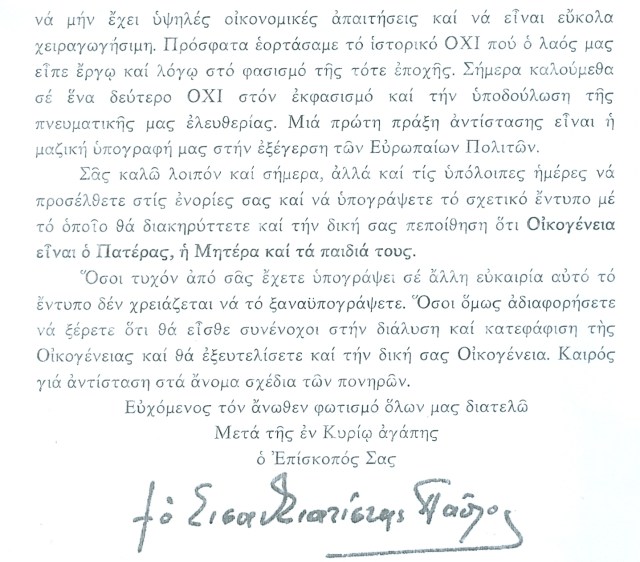 νά μήν ἔχει ὑψηλές οἰκονομικές ἀπαιτήσεις καί νά εἶναι εὔκολα
χειραγωγήσιμη. Πρόσφατα ἑορτάσαμε τό ἱστορικό ΟΧΙ πού ὁ λαός μας
εἶπε ἔργῳ καί λόγῳ στό φασισμό τῆς τότε ἐποχῆς. Σήμερα καλούμεθα
σέ ἕνα δεύτερο ΟΧΙ στόν ἐκφασισμό καί τήν ὑποδούλωση τῆς
πνευματικῆς μας ἐλευθερίας. Μιά πρώτη πράξη ἀντίστασης εἶναι ἡ
μαζική ὑπογραφή μας στήν ἐξέγερση τῶν Εὐρωπαίων Πολιτῶν.
Σᾶς καλῶ λοιπόν καί σήμερα, ἀλλά καί τίς ὑπόλοιπες ἡμέρες νά
προσέλθετε στίς ἐνορίες σας καί νά ὑπογράψετε τό σχετικό ἔντυπο μέ
τό ὁποῖο θά διακηρύττετε καί τήν δική σας πεποίθηση ὅτι Οἰκογένεια
εἶναι ὁ Πατέρας, ἡ Μητέρα καί τά παιδιά τους.
Ὅσοι τυχόν ἀπό σᾶς ἔχετε ὑπογράψει σέ ἄλλη εὐκαιρία αὐτό τό
ἔντυπο δέν χρειάζεται νά τό ξαναϋπογράψετε. Ὅσοι ὅμως ἀδιαφορήσετε
νά ξέρετε ὅτι θά εἶσθε συνένοχοι στήν διάλυση καί κατεφάφιση τῆς
Οἰκογένειας καί θά ἐξευτελίσετε καί τήν δική σας Οἰκογένεια. Καιρός
γιά ἀντίσταση στά ἄνομα σχέδια τῶν πονηρῶν.
Εὐχόμενος τόν ἄνωθεν φωτισμό ὅλων μας διατελῶ
Μετά τῆς ἐν Κυρίῳ ἀγάπης
ὁ Ἐπίσκοπός Σας
† ὁ Σισανίου Σιατίστης Παῦλος